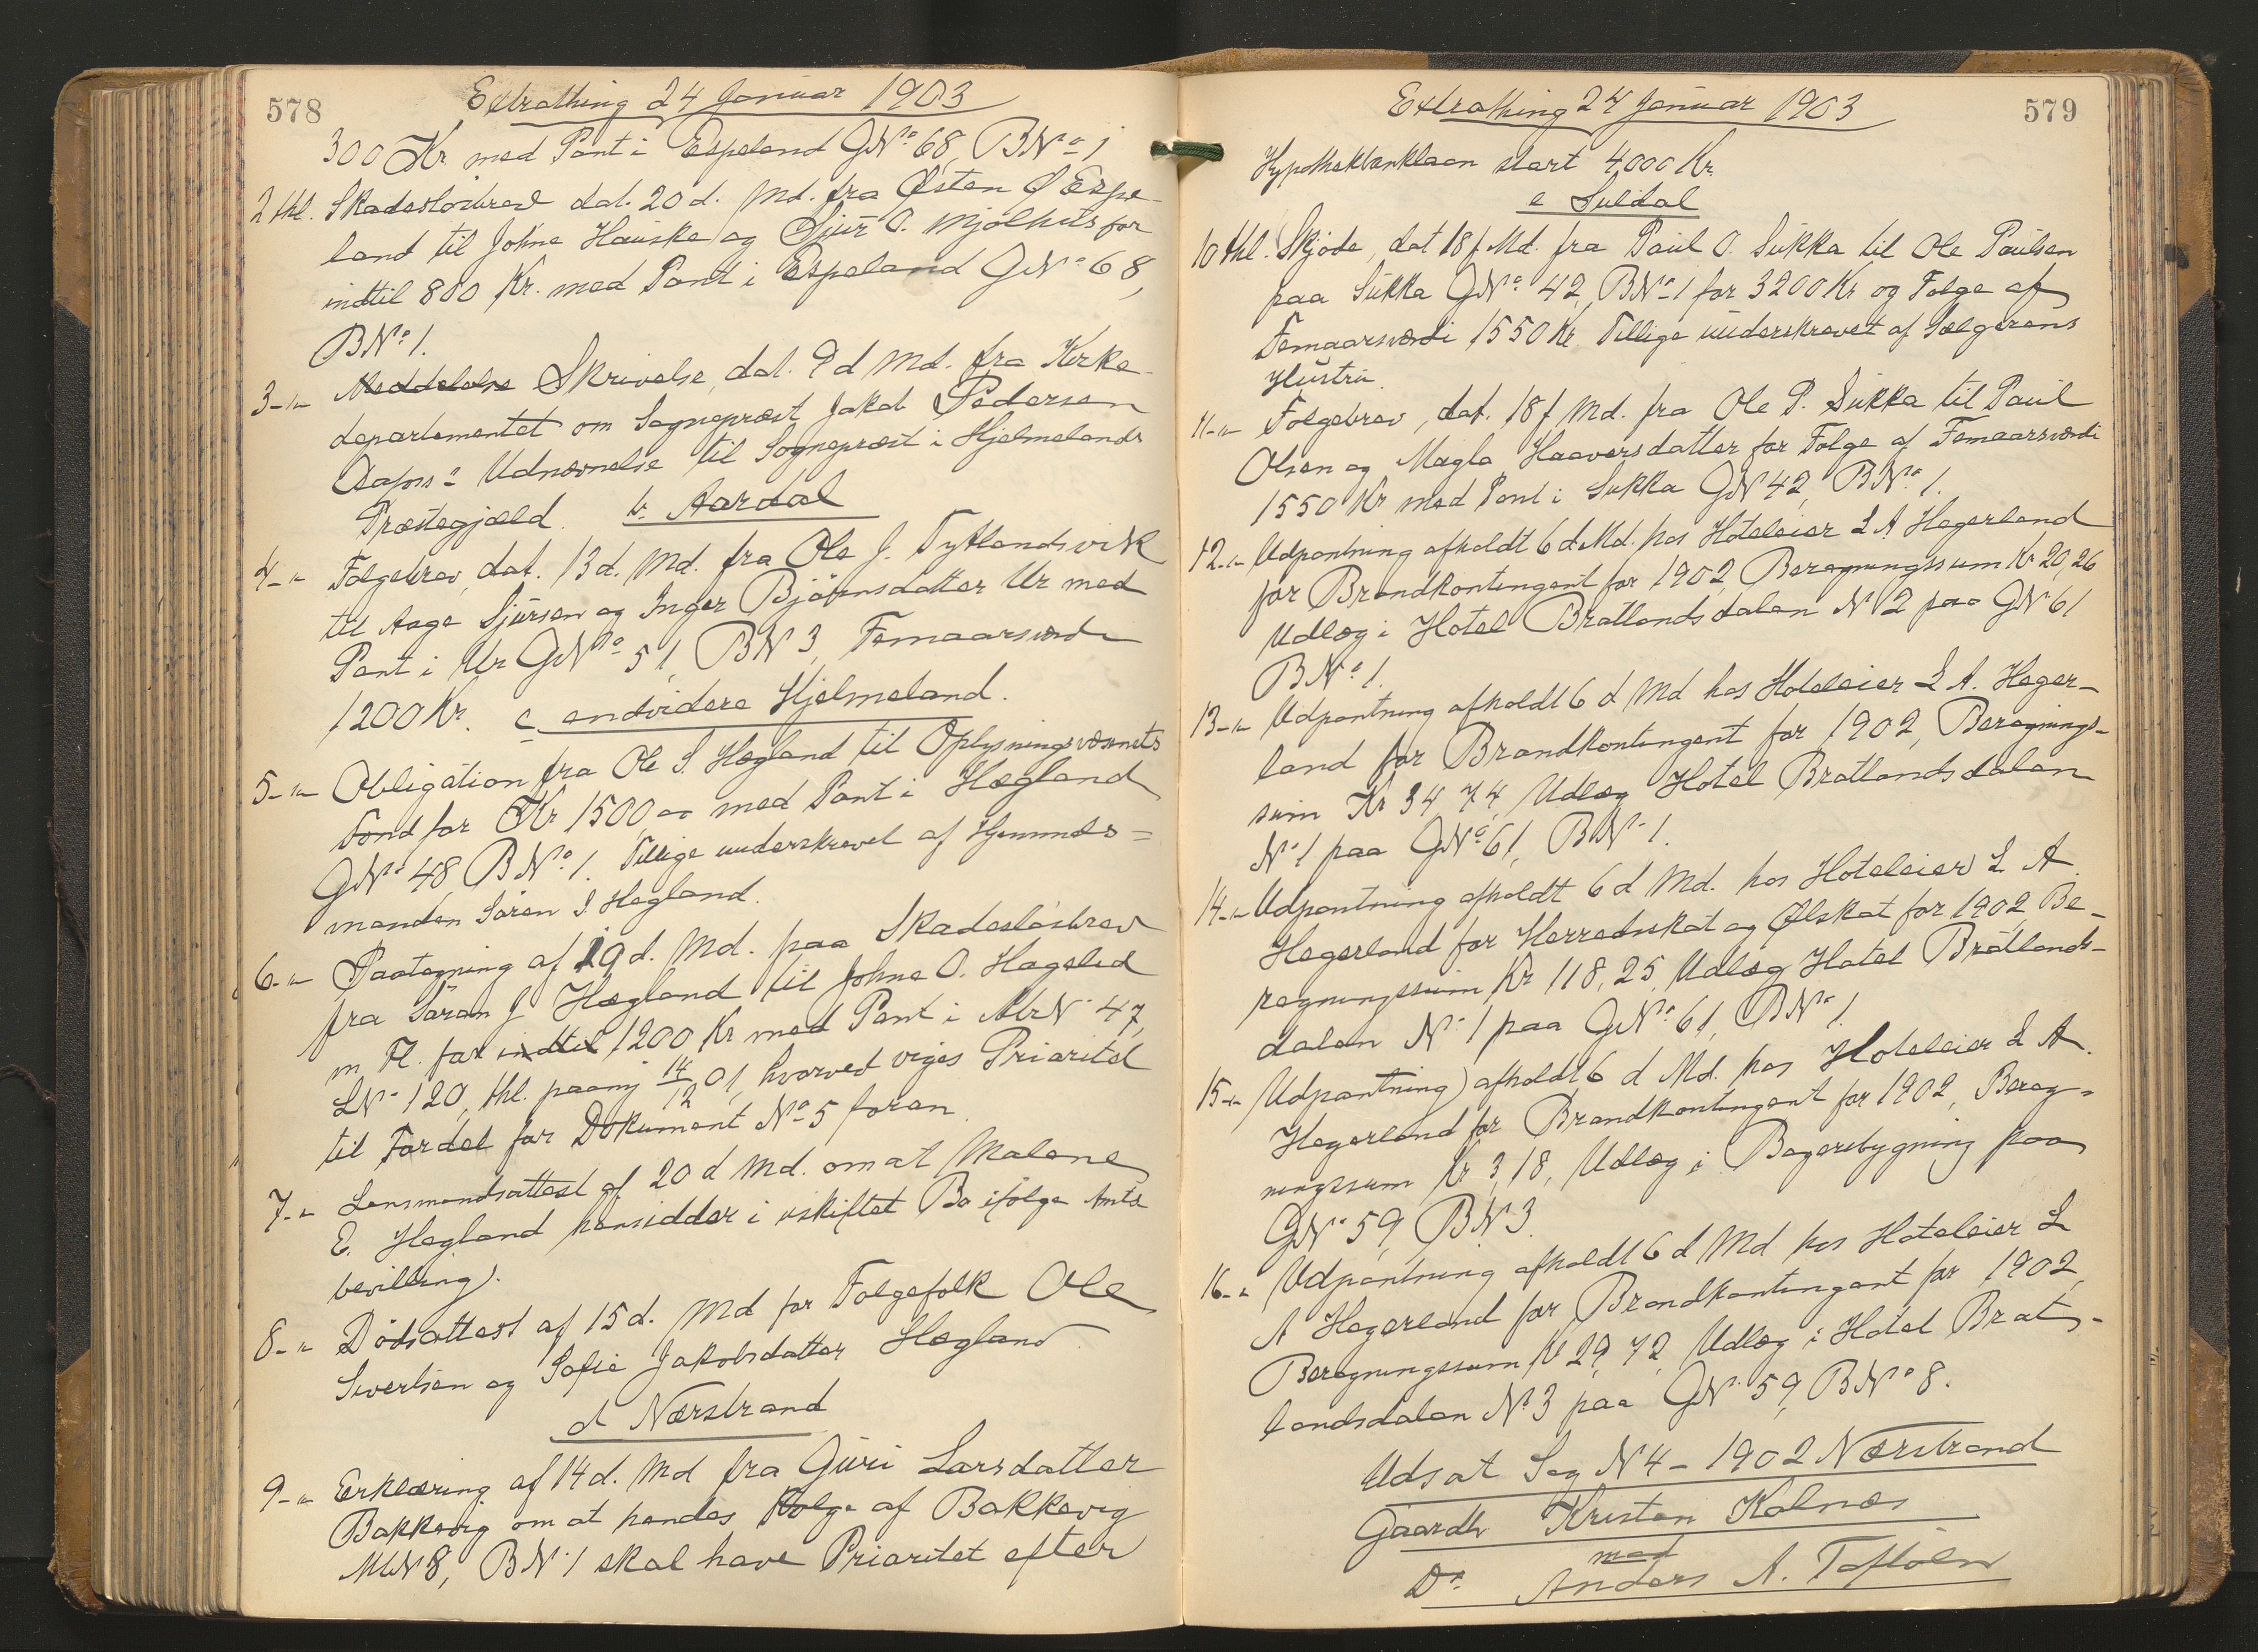 578
Extrathing 24 Januar 1903
300 Kr. med Pant i Espeland GNo 68, BNo 1
2 thl. Skadeslösbrev dat. 20 d. Md. fra Östen Ö Espe-
land til Johne Hauske og Sjur O. Mjølhus for
indtil 800 Kr. med Pant i Espeland GNo 68,
BNo 1.
3-"- Meddelelse Skrivelse, dat. 9 d Md. fra Kirke-
departementet om Sogneprest Jakob Pedersen
Udnævnelse til Sogneprest i Hjelmelands
Præstegjæld. b. Aardal
4-"- Følgebrev, dat. 13 d. Md. fra Ole J. Tytlandsvik
til Aage Sjursen og Inger Bjørnsdatter Ur med
Pant i Ur GNo 51, BN 3, Femaarsværdi
1200 Kr. c endvidere Hjelmeland.
5-"- Obligation fra Ole S. Hægland til Oplysningsvæsenets
Fond for Kr 1500,00 med Pant i Hægland
GNo 48 BNo 1. Tillige underskrevet af Hjemmels=
manden Sören J Hægland.
6-"- Paategning af 19 d. Md. paa Skadeslösbrev
fra Sören J Hægland til Johne O. Hageled
m. Fl. for indtil 1200 Kr med Pant i MtrN 47,
LN 120, thl. paany 14/12 01, hvorved viges Prioritet
til Fordel for Dokument No 5 foran.
7-"- Lensmandsattest af 20 d Md. om at Malene
E. Hægland hensidder i uskiftet Bo ifølge Amts
bevilling.
8-"- Dödsattest af 15 d. Md for Folgefolk Ole
Sivertsen og Sofie Jakobsdatter Hægland.
d Nærstrand
9-"- Erklæring af 14 d. Md fra Guri Larsdatter
Bakkevig om at hendes Folge af Bakkevig
MN 8, BN 1 skal have Prioritet efter
579
Extrathing 24 Januar 1903
Hypothekbanklaan stort 4000 Kr.
e Suldal
10 thl. Skjøde, dat 18 f Md. fra Paul O. Sukka til Ole Paulsen
paa Sukka GNo 42, BNo 1 for 3200 Kr og Folge af
Femaarsværdi 1550 Kr. Tillige underskrevet af Sælgerens
Hustru.
11-"- Folgebrev, dat. 18 f Md. fra Ole P. Sukka til Paul
Olsen og Magla Haaversdatter for Folge af Femaarsværdi
1550 Kr med Pant i Sukka GN 42, BNo 1.
12-"- Udpantning afholdt 6 d. Md. hos Hoteleier L A Hegerland
for Brandkontingent for 1902, Beregningssum Kr 20,26
Udlæg i Hotel Bratlandsdalen N 2 paa GN 61
BNo 1.
13-"- Udpantning afholdt 6 d Md hos Hoteleier L A. Heger-
land for Brandkontingent for 1902, Beregnings-
sum Kr 34,74, Udlæg Hotel Bratlandsdalen
No 1 paa GNo 61, BNo 1.
14-"- Udpantning afholdt 6 d Md. hos Hoteleier L. A.
Hegerland for Herredsskat og Ølskat for 1902, Be-
regningssum Kr 118,25, Udlæg Hotel Bratlands-
dalen No 1 paa GNo 61, BNo 1.
15-"- Udpantning afholdt 6 d Md. hos Hoteleier L A.
Hegerland for Brandkontingent for 1902, Bereg-
ningssum Kr 3,18, Udlæg i Bageribygning paa
GNo 59, BN 3.
16-"- Udpantning afholdt 6 d Md hos Hoteleier L
A Hegerland for Brandkontingent for 1902,
Beregningssum Kr 29,72, Udlæg i Hotel Brat-
landsdalen No 3 paa GN 59, BNo 8.
Udsat Sag N 4 - 1902 Nærstrand
Gaardbr Kristen Kalnes
mod
Do Anders A.